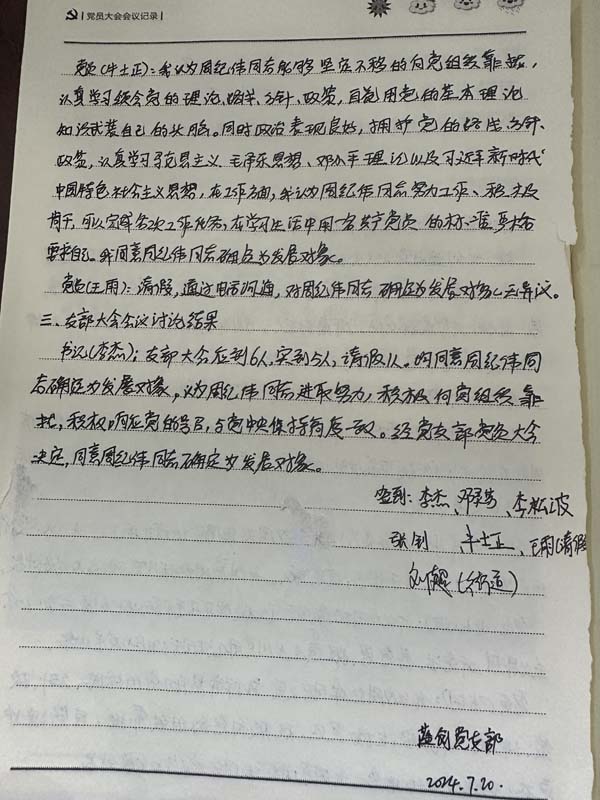 党员大会会议记录
党员(牛士正):我认为周纪伟同志能够坚定不移的向党组织靠拢,
认真学习领会党的理论、路线、方针、政策,自觉用党的基本理论
知识武装自己的头脑。同时政治表现良好,拥护党的路线、方针、
政策,认真学习马克思主义、毛泽东思想、邓小平理论以及习近平新时代
中国特色社会主义思想,在工作方面,我认为周纪伟同志努力工作、积极
肯干,可以完成各次工作任务,在学习生活中用一名共产党员的标准严格
要求自己。我同意周纪伟同志确定为发展对象。
党员(王雨):请假,通过电话沟通,对周纪伟同志确定为发展对象,无异议。
三、支部大会会议讨论结果
书记(李杰):支部大会应到6人,实到5人,请假1人。均同意周纪伟同
志确定为发展对象。认为周纪伟同志进取努力,积极向党组织靠
拢,积极响应党的号召,与党中央保持高度一致。经党支部党员大会
决定,同意周纪伟同志确定为发展对象。
签到:李杰、邓、李松波
张钊 牛士正、王雨(请假
刘
党支部
2024.7.20.